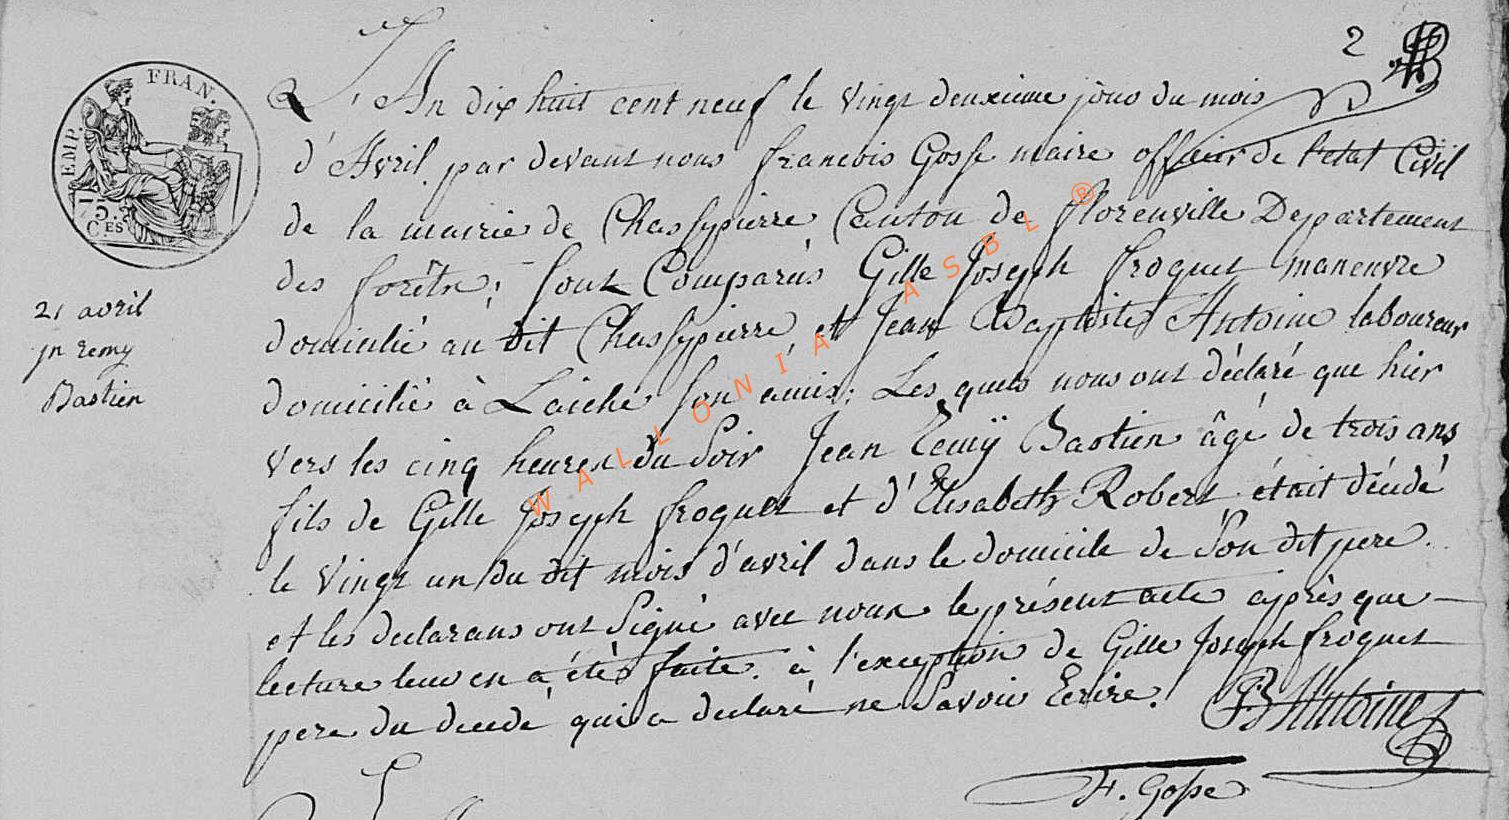 2
EMP. FRAN.
75.
CES
L'An dix huit cent neuf le vingt deuxieme jour du mois
d'Avril par devant nous francois Gosse maire officier de l'etat Civil
de la mairie de Chassepierre Canton de florenville Departement
des forêts; sont Comparús Gille Joseph froquet maneuvre
domicilié au dit Chassepierre et Jean Baptiste Antoine laboureur
domicilié à Laiche son amis; Les quels nous ont déclaré que hier
vers les cinq heures du soir Jean Remÿ Bastien âgé de trois ans
fils de Gille Joseph froquet et d'Elisabeth Robert était décédé
le vingt un du dit mois d'avril dans le domicile de son dit pere
et les declarans ont signé avec nous le présent acte après que
lecture leur en a été faite. à l'exception de Gille Joseph froquet
pere du decedé qui a declaré ne savoir Ecrire.
JB Antoine
F. Gosse
21 avril
jn remy
Bastien
WALLONIA ASBL ®